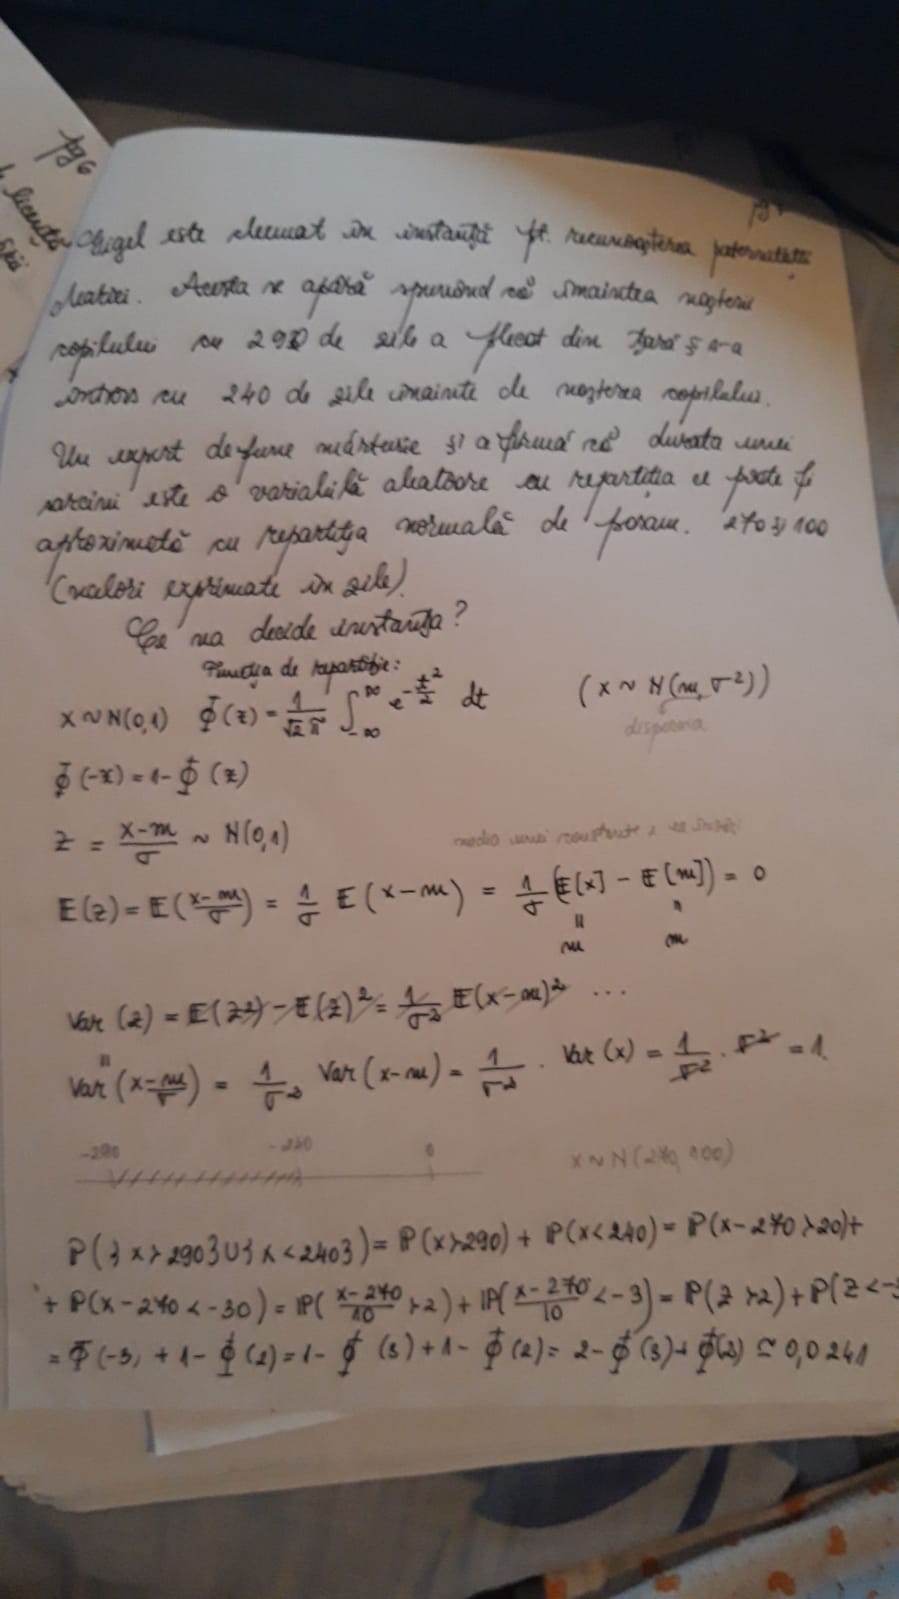 pg 6
Gigel este chemat în instanță pt. recunoașterea paternității
Acesta se apără spunând că înaintea nașterii
copilului cu 290 de zile a plecat din țară și s-a
întors cu 240 de zile înainte de nașterea copilului.
Un expert depune mărturie și afirmă că durata unei
sarcini este o variabilă aleatoare cu repartiția ce poate fi
aproximată cu repartiția normală de param. 270 și 100
(valori exprimate în zile).
Ce va decide instanța?
Funcția de repartiție:
X ~ N(0,1) Φ(z) = 1/√2π ∫_{-∞}^{∞} e^{-t²/2} dt (X ~ N(m, σ²))
dispersia
Φ(-z) = 1 - Φ(z)
Z = (X-m)/σ ~ N(0,1)
media unei constante e
E(z) = E((X-m)/σ) = 1/σ E(X-m) = 1/σ (E[X] - E[m]) = 0
" "
m m
Var(z) = E(Z²) - E(z)² = 1/σ² E(X-m)² ...
"
Var((X-m)/σ) = 1/σ² Var(X-m) = 1/σ² · Var(X) = 1/σ² · σ² = 1.
-290 -240 0 X ~ N(270, 100)
P({X>290}∪{X<240}) = P(X>290) + P(X<240) = P(X-270>20)+
+ P(X-270<-30) = P((X-270)/10 > 2) + P((X-270)/10 < -3) = P(Z>2) + P(Z<-3
= Φ(-3) + 1 - Φ(2) = 1 - Φ(3) + 1 - Φ(2) = 2 - Φ(3) + Φ(2) ≃ 0,0241